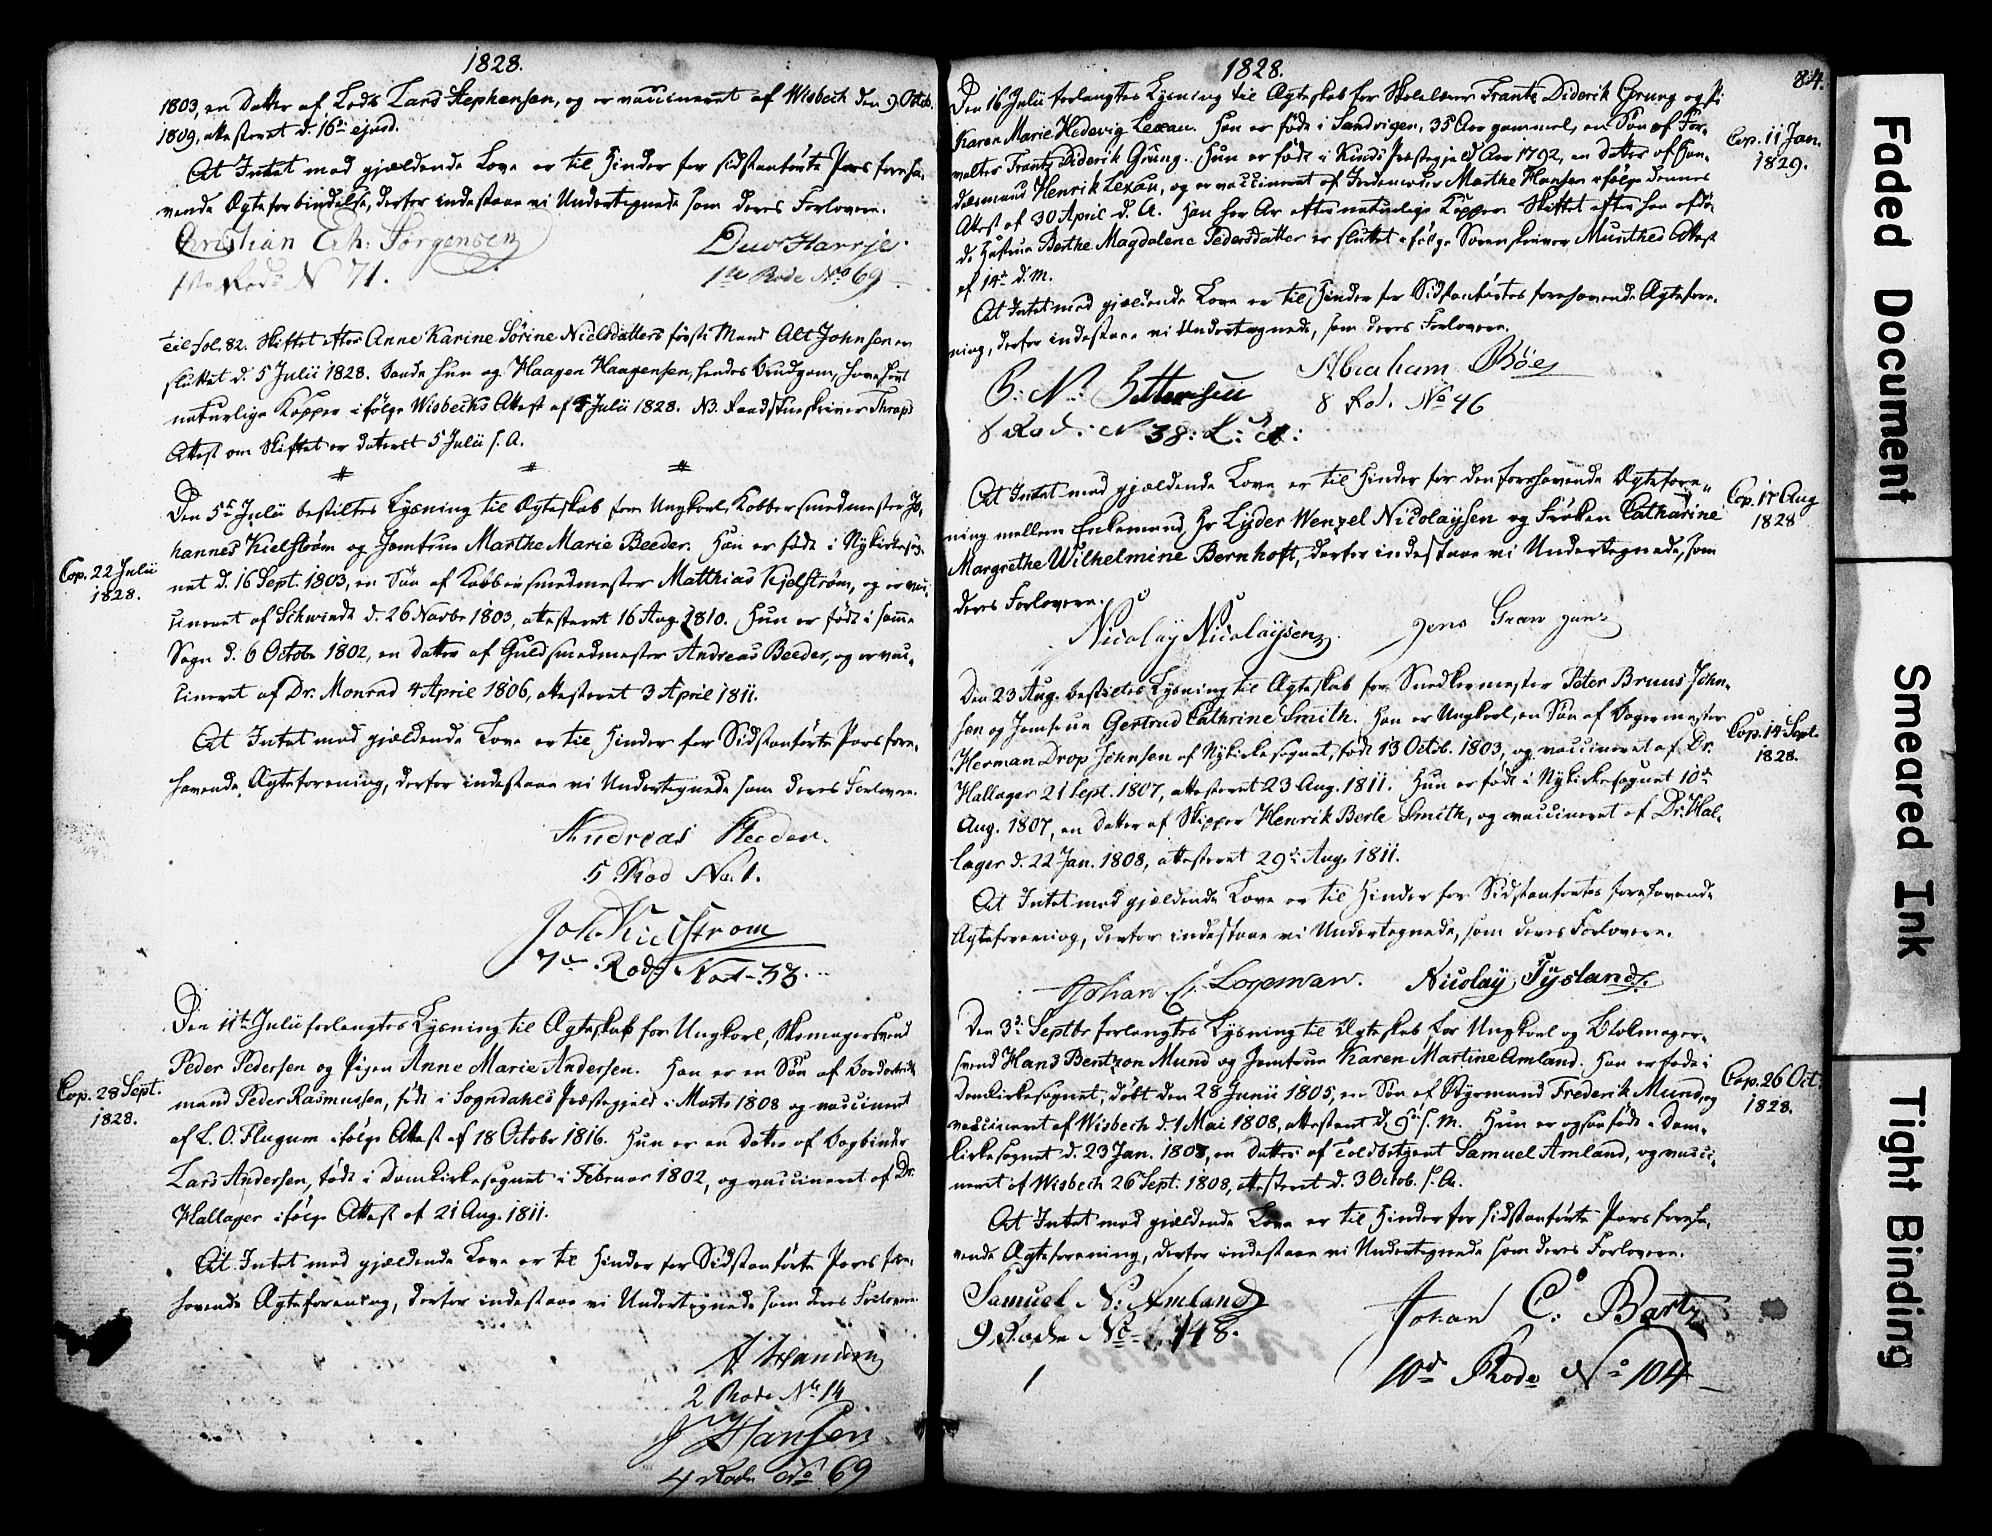 1828.
1803, en Datter af Lods Lars Stephensen, og er vaccineret af Wisbech den 9 Octob.
1809, attesteret d. 16de ejusd.
At Intet mod gjældende Love er til Hinder for sidstanførte Pars foreha-
vende Ægteforbindelse, derfor indestaae vi Undertegnede som deres Forlovere.
Christian Erh. Jørgensen
1ste Rode N 71.
1te Rode No 69
til Fol. 82. Skiftet efter Anne Karine Sørine Nielsdatters første Mand Alt Johnsen er
sluttet d. 5 Julii 1828. Baade hun og Haagen Haagensen, hendes Brudgom, have havt
naturlige Kopper ifølge Wisbechs Attest af 5 Julii 1828. NB. Raadstueskriver Thraps
Attest om Skiftet er dateret 5 Julii s. A.
Den 5te Julii bestiltes Lysning til Ægteskab for Ungkarl, Kobbersmedmester Jo-
hannes Kielstrøm og Jomfrue Marthe Marie Beeder. Han er født i Nykirkesog-
net d. 16 Sept. 1803, en Søn af Kobbersmedmester Matthias Kjelstrøm, og er vac-
cineret af Schwindt d. 26 Novbr 1803, attesteret 16 Aug. 1810. Hun er født i samme
Sogn d. 6 Octobr 1802, en Datter af Guldsmedmester Andreas Beeder, og er vac-
cineret af Dr. Monrad 4 April 1806, attesteret 3 April 1811.
Cop. 22 Julii
1828.
At Intet mod gjældende Love er til Hinder for Sidstanførte Pars fore-
havende Ægteforening, derfor indestaae vi Undertegnede som deres Forlovere.
Andreas Beeder.
5 Rod No. 1.
Joh. Kielstrøm
7de Rode No 33.
Den 11te Julii forlangtes Lysning til Ægteskab for Ungkarl, Skomagersvend
Peder Pedersen og Pigen Anne Marie Andersen. Han er en Søn af
mand Peder Rasmussen, født i Sogndahls Præstegjeld i Marts 1808 og vaccineret
af L. O. Flugum ifølge Attest af 18 Octobr 1816. Hun er en Datter af Bogbinder
Lars Andersen, født i Domkirkesognet i Februar 1802, og vaccineret af Dr.
Hallager ifølge Attest af 21 Aug. 1811.
Cop. 28 Sept.
1828.
At Intet mod gjældende Love er til Hinder for Sidstanførte Pars fore-
havende Ægteforening, derfor indestaae vi Undertegnede som deres Forlovere.
Hansen
2 Rode No 14
J Hansen
4 Rode No 69
1828.
84.
Den 16 Julii forlangtes Lysning til Ægteskab for Skolelærer Frantz Diderik Grung og Pi
Karen Marie Hedevig Lexau. Han er født i Sandvigen, 35 Aar gammel, en Søn af For-
valter Frantz Diderik Grung. Hun er født i Kinds Præstegjeld Aar 1792, en Datter af Han-
delsmand Henrik Lexau, og er vaccineret af Jordemoder Marthe Hansen ifølge dennes
Attest af 30 April d. A. Han har Ar efter naturlige Kopper. Skiftet efter hans afdø-
de Hustrue Berthe Magdalene Pedersdatter er sluttet ifølge Sorenskriver Munthes Attest
af 14de d. M.
Cop. 11 Jan.
1829.
At Intet mod gjældende Love er til Hinder for Sidstanførtes forehavende Ægtefore-
ning, derfor indestaae vi Undertegnede, som deres Forlovere.
Abraham Bøe
8 Rod. No 46
8 Rode: N 38: L: A:
At Intet mod gjældende Love er til Hinder for den forehavende Ægtefore-
ning mellem Enkemand, Hr Lyder Wenzel Nicolaysen og Frøken Catharine
Margrethe Wilhelmine Bernhoft, derfor indestaae vi Undertegnede, som
deres Forlovere.
Cop. 17 Aug
1828
Nicolay Nicolaysen
Jens Gran junr
Den 23 Aug. bestiltes Lysning til Ægteskab for Snedkermester Peter Bruus John-
sen og Jomfrue Gertrud Cathrine Smith. Han er Ungkarl, en Søn af Bagermester
Herman Drop Johnsen af Nykirkesognet, født 13 Octob. 1803, og vaccineret af Dr.
Hallager 21 Sept. 1807, attesteret 23 Aug. 1811. Hun er født i Nykirkesognet 10de
Aug. 1807, en Datter af Skipper Henrik Berle Smith, og vaccineret af Dr. Hal-
lager d. 22 Jan. 1808, attesteret 29de Aug. 1811.
Cop. 14 Sept.
1828.
At Intet mod gjældende Love er til Hinder for Sidstanførtes forehavende
Ægteforening, derfor indestaae vi Undertegnede, som deres Forlovere.
Johan C. Nicolay Tysland
Den 3de Septbr forlangtes Lysning til Ægteskab for Ungkarl og Blokmager-
svend Hans Bentzon Mund og Jomfrue Karen Martine Amland. Han er født i
Domkirkesognet, døbt den 28 Junii 1805, en Søn af Styrmand Frederik Mund, og
vaccineret af Wisbech d. 1 Mai 1808, attesteret d. s. M. Hun er ogsaa født i Dom-
kirkesognet d. 23 Jan. 1808, en Datter af Toldbetjent Samuel Amland, og vacci-
neret af Wisbech 26 Sept. 1808, attesteret d. 3 Octob. s. A.
Cop. 26 Oct.
1828.
At Intet mod gjældende Love er til Hinder for sidstanførte Pars foreha-
vende Ægteforening, derfor indestaae vi Undertegnede som deres Forlovere.
Samuel N: Amland
9 Rode No 148.
Johan C: Bartz
10de Rode No 104
Faded Document
Smeared Ink
Tight Binding